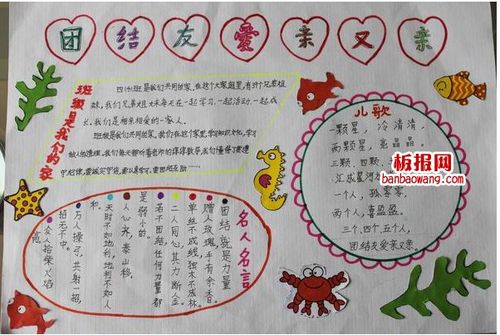 团结友爱亲又亲
班级是我们的家
四(1)班是我们共同的家,在这个大家庭里,有许多兄弟姐
妹,我们兄弟姐妹每天在一起学习一起活动,一起成
长,我们是相亲相爱的一家人。
班级是我们共同的家,我们在这个家里,学习知识文化,学习
做人的道理,我们每天聆听着老师的谆谆教导,我们懂得了遵德
守纪律,
儿歌
一颗星,冷清清,
两颗星,亮晶晶。
三颗、四颗、
汇成星河
一个人,孤零零,
两个人,喜盈盈。
三个、四个、五个人,
团结友爱亲又亲。
板报网
banbaowang.com
名人名言
团结就是力量
赠人玫瑰,手有余香。
单丝不成线,独木不成林。
二人同心,其力断金。
若不团结,任何力量都
是弱小的。
人心齐,泰山移。
天时不如地利,地利不如人
和。
万人操弓,共射一招,
招无不中。
众人拾柴火焰
高